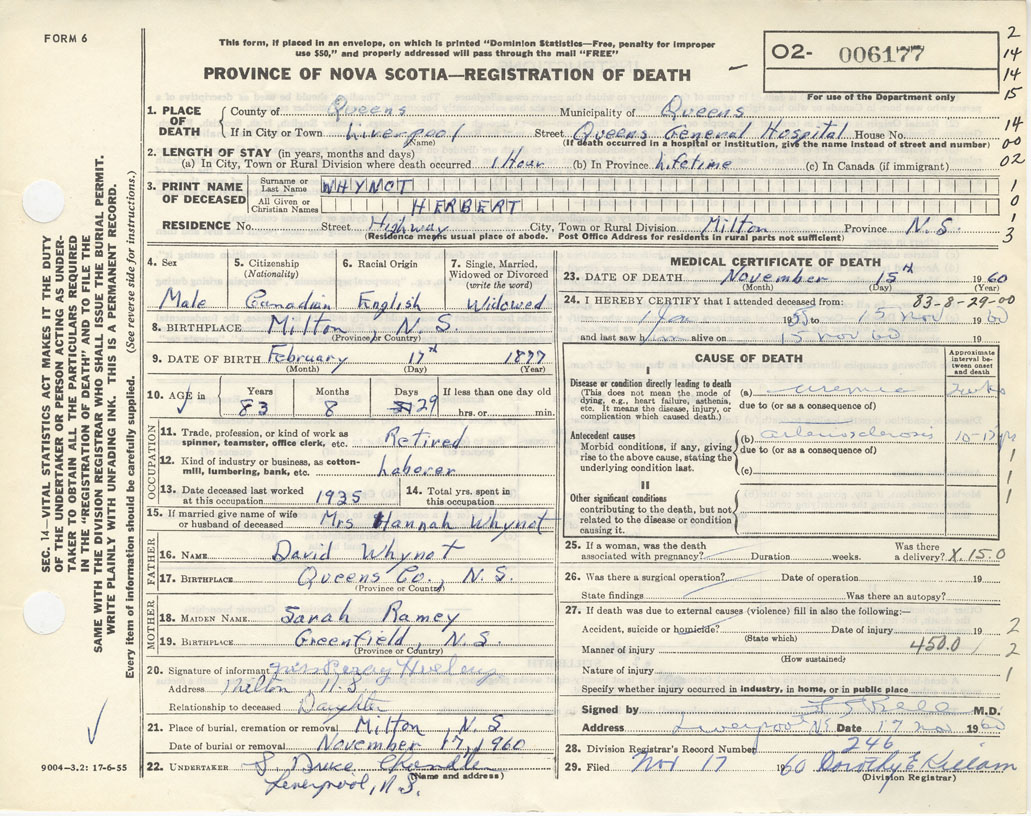 FORM 6
This form, if placed in an envelope, on which is printed "Dominion Statistics—Free, penalty for improper
use $50," and properly addressed will pass through the mail "FREE"
PROVINCE OF NOVA SCOTIA—REGISTRATION OF DEATH
O2- 006177
For use of the Department only
2
14
14
15
14
00
02
1
0
1
3
1. PLACE OF DEATH
County of Queens Municipality of Queens
If in City or Town Liverpool Street Queens General Hospital House No.
(Name) (If death occurred in a hospital or institution, give the name instead of street and number)
2. LENGTH OF STAY (in years, months and days)
(a) In City, Town or Rural Division where death occurred 1 Hour (b) In Province lifetime (c) In Canada (if immigrant)
3. PRINT NAME OF DECEASED
Surname or Last Name WHYNOT
All Given or Christian Names HERBERT
RESIDENCE No. Street Highway City, Town or Rural Division Milton Province N.S.
(Residence means usual place of abode. Post Office Address for residents in rural parts not sufficient)
4. Sex Male
5. Citizenship (Nationality) Canadian
6. Racial Origin English
7. Single, Married, Widowed or Divorced (write the word) Widowed
8. BIRTHPLACE Milton, N.S.
(Province or Country)
9. DATE OF BIRTH February 17th 1877
(Month) (Day) (Year)
10. AGE in Years 83 Months 8 Days 29 If less than one day old hrs. or min.
OCCUPATION
11. Trade, profession, or kind of work as spinner, teamster, office clerk, etc. Retired
12. Kind of industry or business, as cotton-mill, lumbering, bank, etc. Laborer
13. Date deceased last worked at this occupation 1935
14. Total yrs. spent in this occupation
15. If married give name of wife or husband of deceased Mrs Hannah Whynot
FATHER
16. NAME David Whynot
17. BIRTHPLACE Queens Co., N.S.
(Province or Country)
MOTHER
18. MAIDEN NAME Sarah Ramey
19. BIRTHPLACE Greenfield, N.S.
(Province or Country)
20. Signature of informant
Address Milton N.S.
Relationship to deceased Daughter
21. Place of burial, cremation or removal Milton N.S
Date of burial or removal November 17, 1960
22. UNDERTAKER S. Bruce Chandler
(Name and address)
Liverpool, N.S.
MEDICAL CERTIFICATE OF DEATH
23. DATE OF DEATH November 15th 1960
(Month) (Day) (Year)
83-8-29-00
24. I HEREBY CERTIFY that I attended deceased from:
1 Jan 1955 to 15 nov 1960
and last saw him alive on 15 nov 60
CAUSE OF DEATH
Approximate interval between onset and death
I
Disease or condition directly leading to death
(This does not mean the mode of dying, e.g., heart failure, asthenia, etc. It means the disease, injury, or complication which caused death.)
(a) uremia
due to (or as a consequence of)
Antecedent causes
Morbid conditions, if any, giving rise to the above cause, stating the underlying condition last.
(b) arteriosclerosis
due to (or as a consequence of)
(c)
II
Other significant conditions
contributing to the death, but not related to the disease or condition causing it.
1
1
1
25. If a woman, was the death associated with pregnancy? Duration weeks. Was there a delivery? X.15.0
26. Was there a surgical operation? Date of operation 19
State findings Was there an autopsy?
27. If death was due to external causes (violence) fill in also the following:—
Accident, suicide or homicide? Date of injury 19
(State which)
Manner of injury 450.0
(How sustained)
Nature of injury
2
2
1
Specify whether injury occurred in industry, in home, or in public place
Signed by M.D.
Address Liverpool NS Date 17 nov 1960
28. Division Registrar's Record Number 246
29. Filed Nov 17 1960 Dorothy E Killam
(Division Registrar)
SEC. 14—VITAL STATISTICS ACT MAKES IT THE DUTY
OF THE UNDERTAKER OR PERSON ACTING AS UNDER-
TAKER TO OBTAIN ALL THE PARTICULARS REQUIRED
IN THE "REGISTRATION OF DEATH" AND TO FILE THE
SAME WITH THE DIVISION REGISTRAR WHO SHALL ISSUE THE BURIAL PERMIT.
WRITE PLAINLY WITH UNFADING INK. THIS IS A PERMANENT RECORD.
Every item of information should be carefully supplied. (See reverse side for instructions.)
9004-3.2: 17-6-55